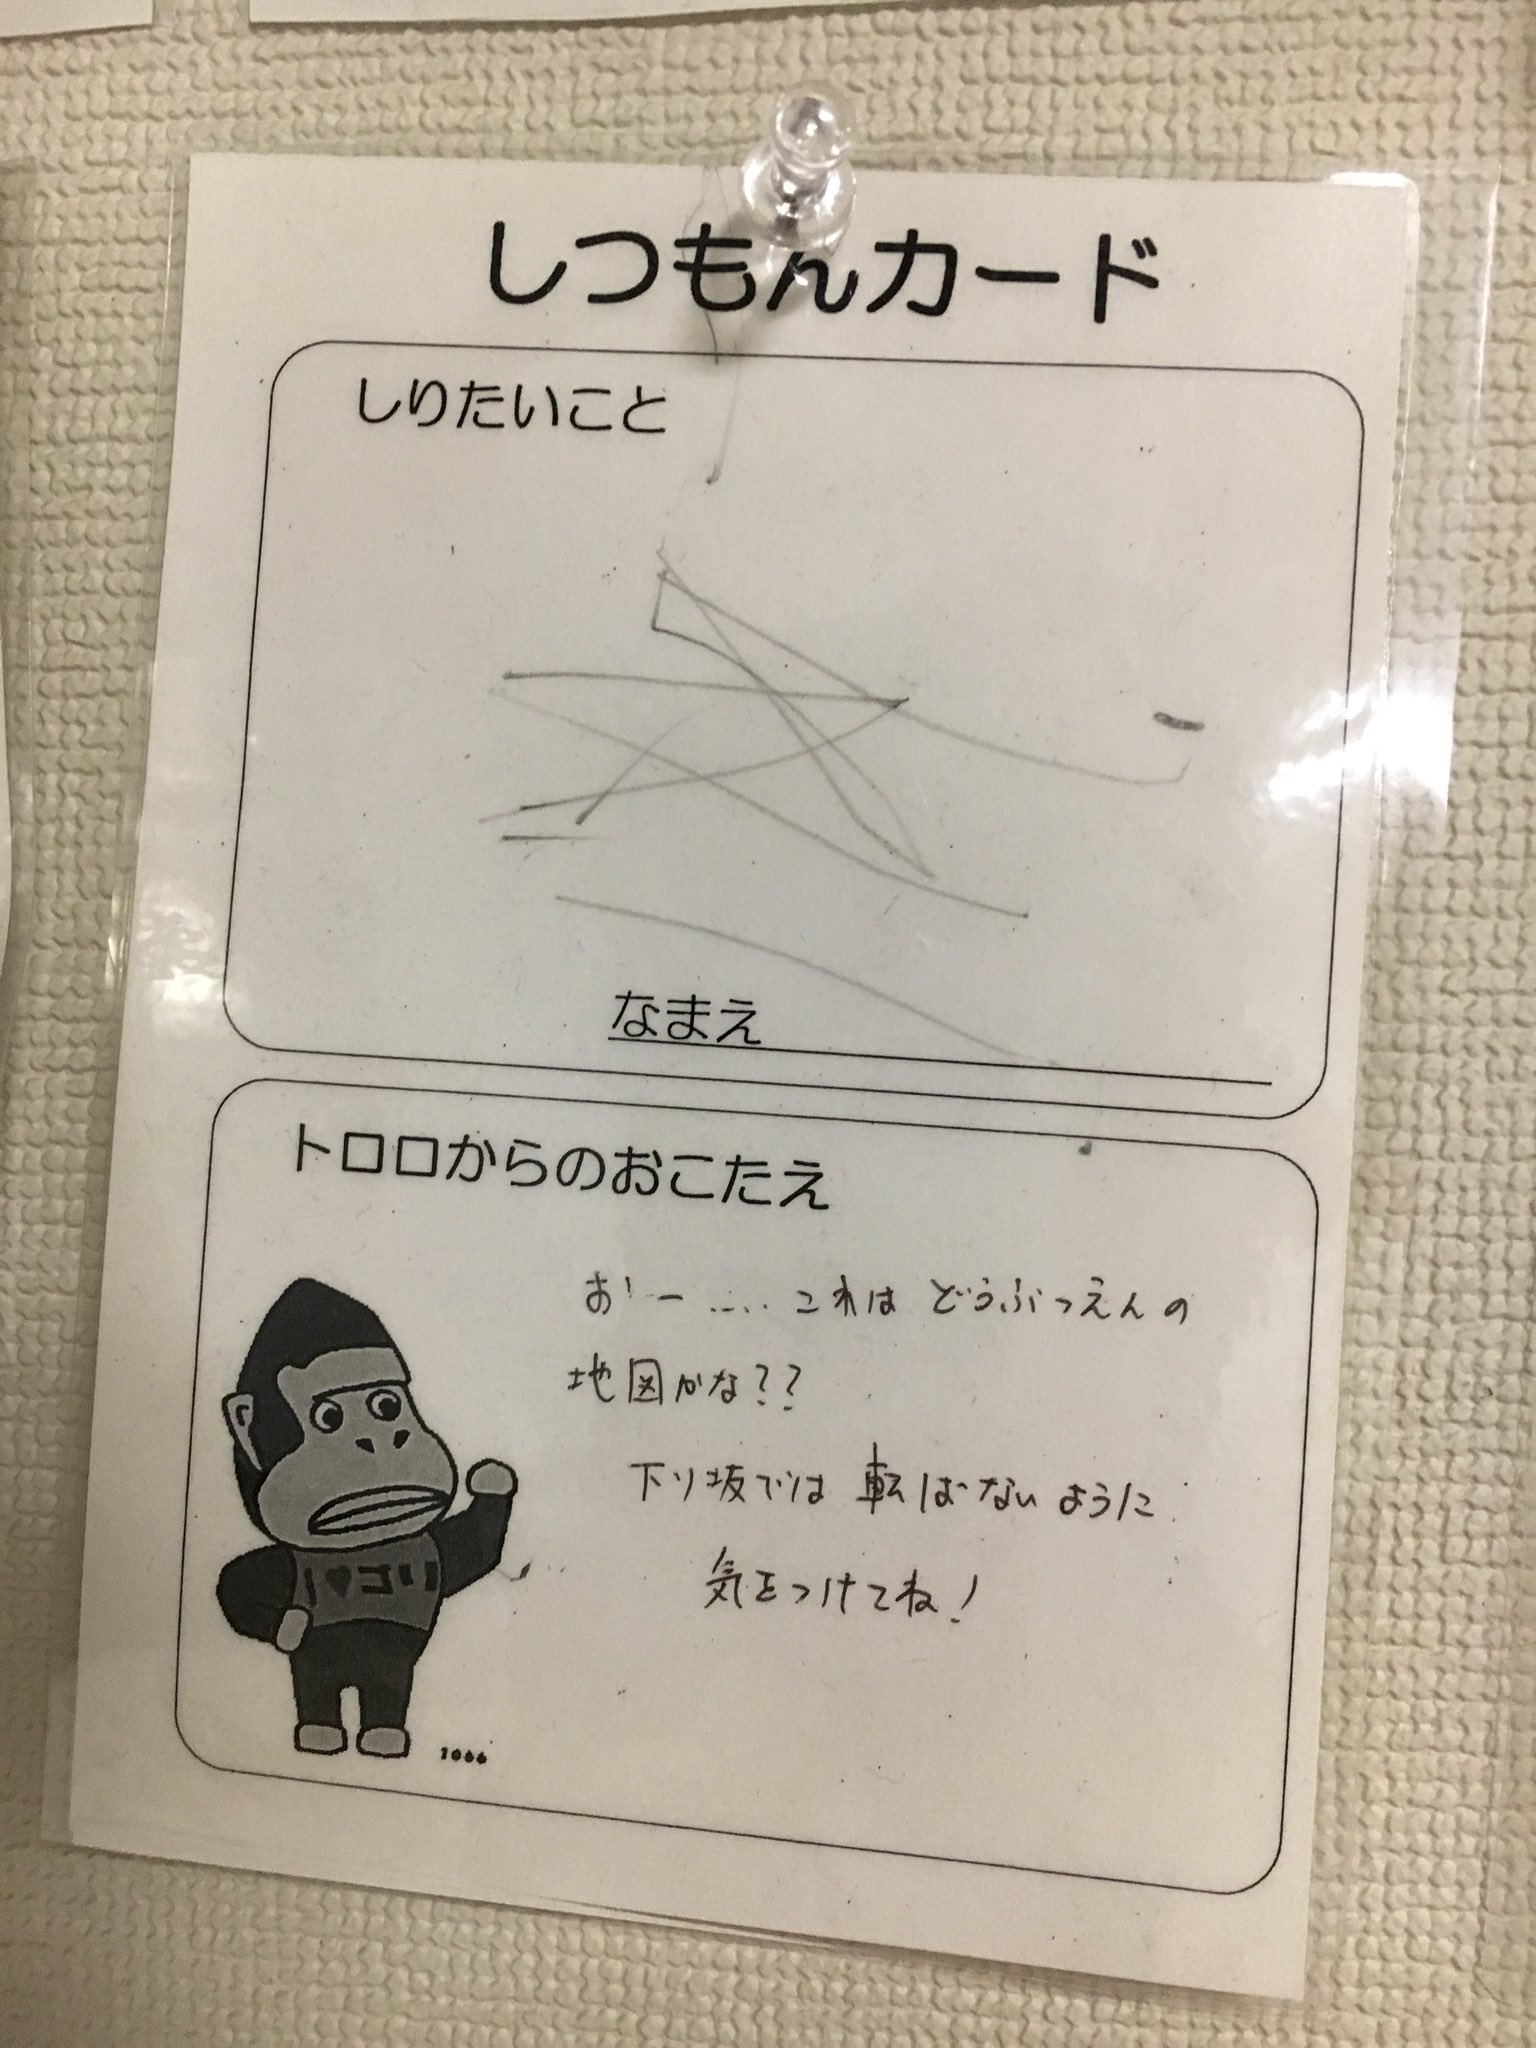 しつもんカード
しりたいこと
なまえ
トロロからのおこたえ
おーー…‥これは どうぶつえんの
地図かな??
下り坂では 転ばないように
気をつけてね!
I♥ゴリ